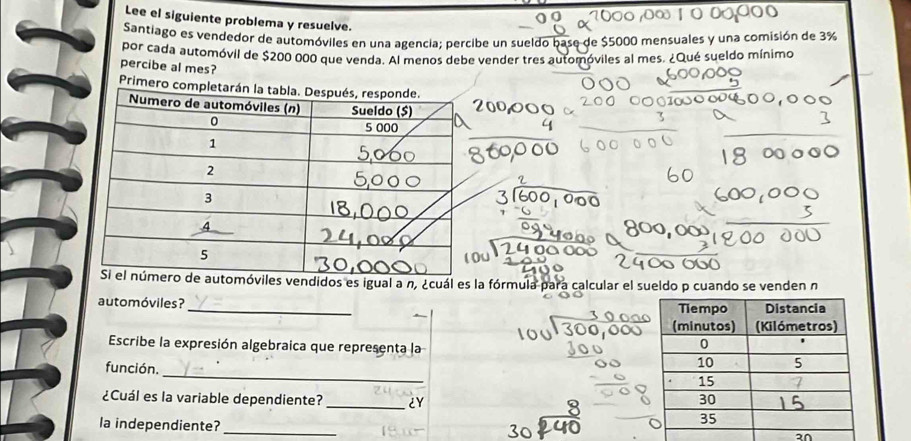 Lee el siguiente problema y resuelve.
Santiago es vendedor de automóviles en una agencia; percibe un sueldo base de $5000 mensuales y una comisión de 3%
por cada automóvil de $200 000 que venda. Al menos debe vender tres automóviles al mes. ¿Qué sueldo mínimo
percibe al mes?
Primero completarán la tabla. Después, responde.
Numero de automóviles (n) Sueldo ($)
0 5 000
1 5,000
2 5,000
3 18,000
4 24,000
5 30,0000
200,000
4
800,000
200 000
3
600 000
600,000
3
18 00000
60
3 600,000
800,000
3
2400 000
600,000
3
1800 000
100 2400000
Si el número de automóviles vendidos es igual a n, ¿cuál es la fórmula para calcular el sueldo p cuando se venden n
automóviles? y =
Escribe la expresión algebraica que representa la
función. y =
¿Cuál es la variable dependiente? ¿Y
la independiente?
30000
100 300,000
300
00
8
30 240
Tiempo (minutos) Distancia (Kilómetros)
0
10 5
15 7
30 15
35
30